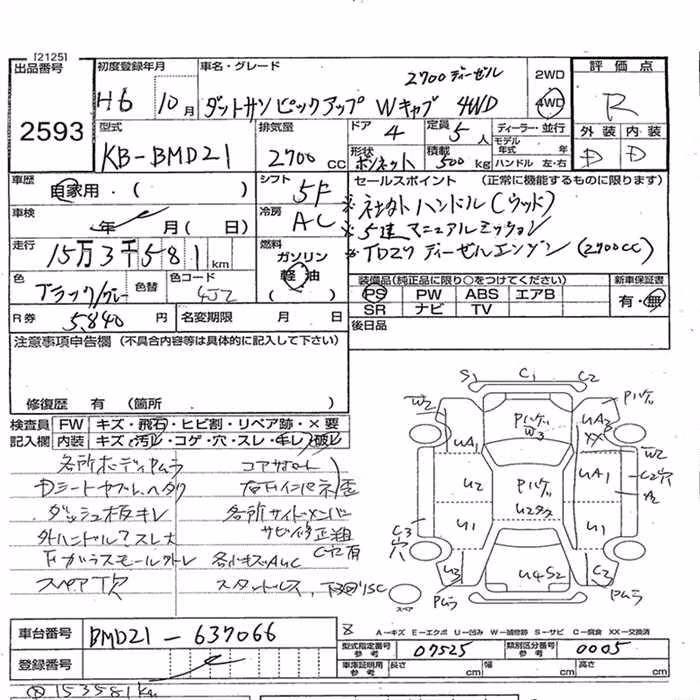 [2125]
出品番号
2593
初度登録年月
H6 10月
車名・グレード
2700 ディーゼル
ダットサンピックアップ Wキャブ 4WD
2WD
4WD
評価点
R
外装 内装
D D
型式
KB-BMD21
排気量
2700 cc
ドア
4
定員
5人
形状
ボンネット
積載
500 kg
ディーラー・並行
モデル
年式 年
ハンドル 左・右
車歴
自家用・( )
シフト
5F
セールスポイント (正常に機能するものに限ります)
※社外ハンドル(ウッド)
※5速マニュアルミッション
※TD27ディーゼルエンジン(2700cc)
車検
年 月(日)
冷房
AC
走行
15万3千581km
燃料
ガソリン
軽油
( )
色
ブラック/グレー
色替
色コード
4J2
装備品(純正品に限り○をつけてください)
PS PW ABS エアB
SR ナビ TV
新車保証書
有・無
R券
5,840円
名変期限 月 日
後日品
注意事項申告欄 (不具合内容等は具体的に記入して下さい)
修復歴 有 (箇所 )
検査員
記入欄
FW キズ・飛石・ヒビ割・リペア跡・×要
内装 キズ・汚レ・コゲ・穴・スレ・キレ・破レ
各所ボディPムラ コアサポート
Dシートヤブレ、ヘタリ
ダッシュ板キレ 各所サイドメンバー
外ハンドルスレ大 サビ
Fガラスモールハズレ 各小キズAUC
スペアT欠 スタットレス、
S1 C1 C2
W2
UA1
Pハゲ
W3
Pハゲ
UA2
XX
W2
U2
Pハゲ
U2タタ
UA1
C2穴
A2
U1
U1
C3
穴
U3
Pムラ
U4S2
C3
Pムラ
スペア
A-キズ E-エクボ U-凹み W-補修跡 S-サビ C-腐食 XX-交換済
車台番号
BMD21-637066
型式指定番号
参考
07525
類別区分番号
参考
0005
登録番号
車庫証明用
参考
長さ cm
幅 cm
高さ cm
153581km